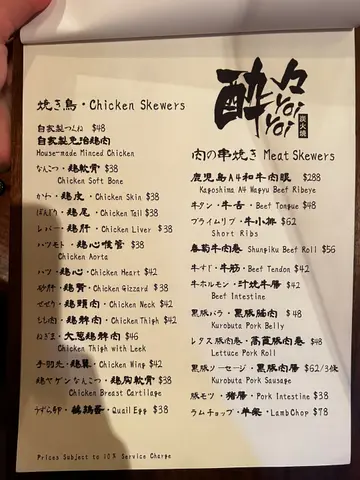 酔々
Yoi
Yoi
炭火焼
焼き鳥・Chicken Skewers
自家製つくね $48
自家製免治鶏肉
House-made Minced Chicken
なんこつ・鶏軟骨 $38
Chicken Soft Bone
かわ・鶏皮・Chicken Skin $38
ぼんじり・鶏尾・Chicken Tail $38
レバー・鶏肝・Chicken Liver $38
ハツモト・鶏心喉管 $38
Chicken Aorta
ハツ・鶏心・Chicken Heart $42
砂肝・鶏腎・Chicken Gizzard $38
せせり・鶏頸肉・Chicken Neck $42
もも肉・鶏髀肉・Chicken Thigh $42
ねぎま・大葱鶏髀肉 $46
Chicken Thigh with Leek
手羽先・鶏翼・Chicken Wing $42
鶏ヤゲンなんこつ・鶏胸軟骨 $38
Chicken Breast Cartilage
うずら卵・鵪鶉蛋・Quail Egg $38
肉の串焼き Meat Skewers
鹿児島A4和牛肉眼 $288
Kagoshima A4 Wagyu Beef Ribeye
牛タン・牛舌・Beef Tongue $48
プライムリブ・牛小排 $62
Short Ribs
春菊牛肉卷 Shungiku Beef Roll $56
牛すじ・牛筋・Beef Tendon $42
牛ホルモン・汁燒牛腸 $42
Beef Intestine
黒豚バラ・黑豚腩肉 $48
Kurobuta Pork Belly
レタス豚肉巻・生菜豚肉卷 $48
Lettuce Pork Roll
黒豚ソーセージ・黑豚肉腸 $62/3條
Kurobuta Pork Sausage
豚モツ・豬腸・Pork Intestine $38
ラムチョップ・羊架・LambChop $78
Prices Subject to 10% Service Charge